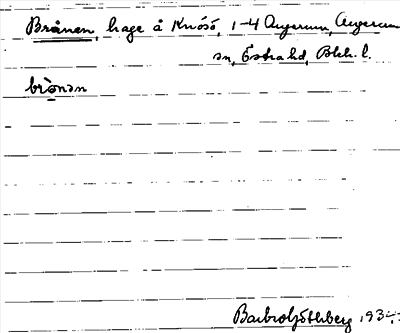 Brånen, hage å Knösö, 1-4 Augerum, Augerum
sn, Östra hd, Blek. l.
brånən
Barbro Göthberg 193